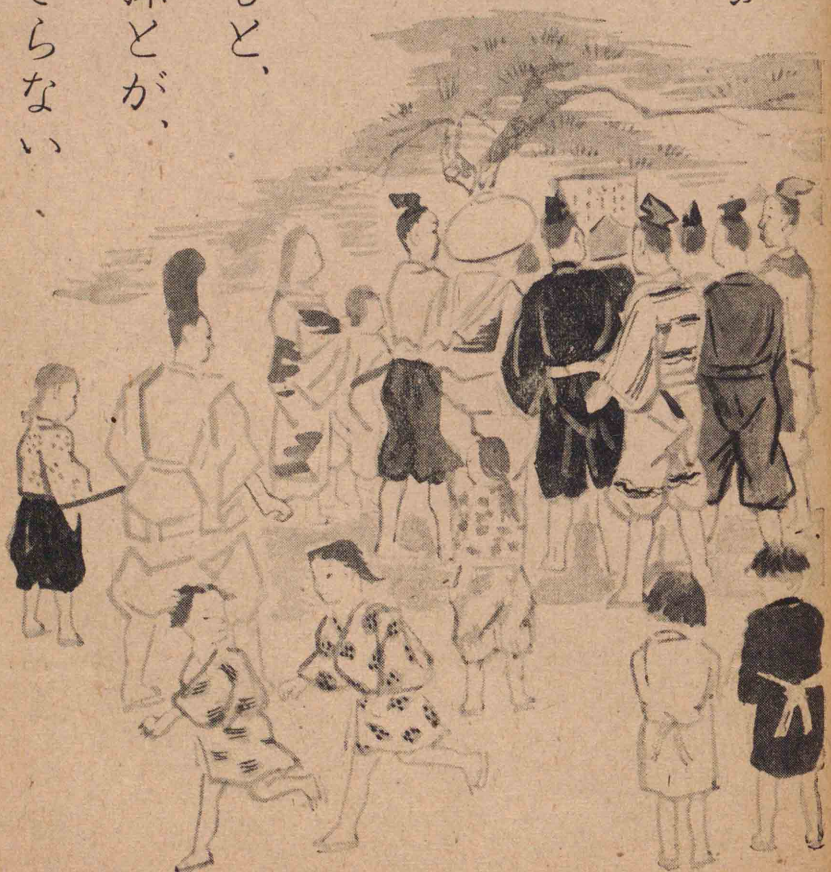 もと、
とが、
らない